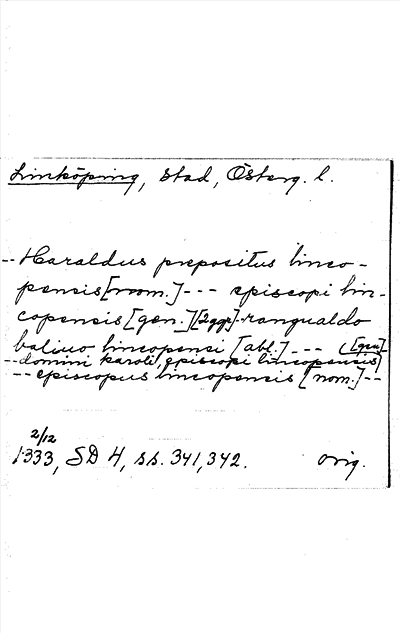 Linköping, stad, Österg. l.
-- Haraldus prepositus linco-
pensis [nom.] --- episcopi lin-
copensis [gen.] [2 ggr] - rangualdo
baliuo lincopensi [abl.] --- ([gen]
-- domini karoli episcopi lincopensis)
-- episcopus lincopensis [nom.] --
2/12
1333, SD 4, ss. 341, 342. orig.